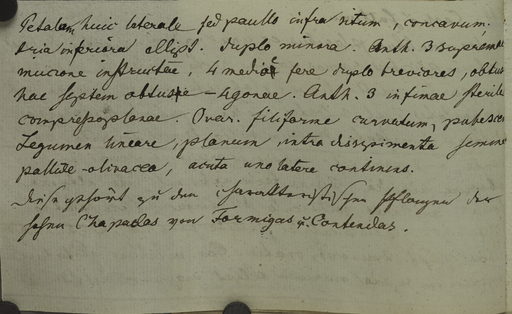 Petalum huic laterale sed paullo infra situm, concavum.
tria inferiora ellipt. duplo minora. Anth. 3 supremae
mucrone instructae, 4 mediae fere duplo breviores, obtus
hae septem obtuse - 4gonae. Anth. 3 infimae sterile
compressoplanae. Ovar. filiforme curvatum, pubescen
Legumen lineare, planum, intra dissepimenta semine
pallide-olivacea, acuta uno latere continens.
Diese gehört zu den charakteristischen Pflanzen der
hohen Chapadas von Formigas u. Contendas.